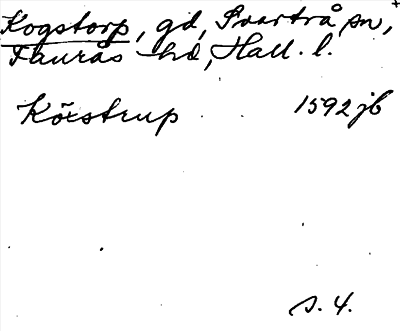 Kogstorp, gd, Svartrå sn, +
Faurås hd, Hall. l.
Köxstrup 1592 jb
s. 4.